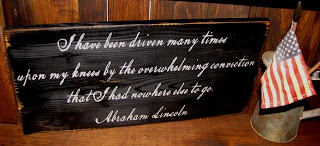 I have been driven many times
upon my knees by the overwhelming conviction
that I had nowhere else to go.
Abraham Lincoln